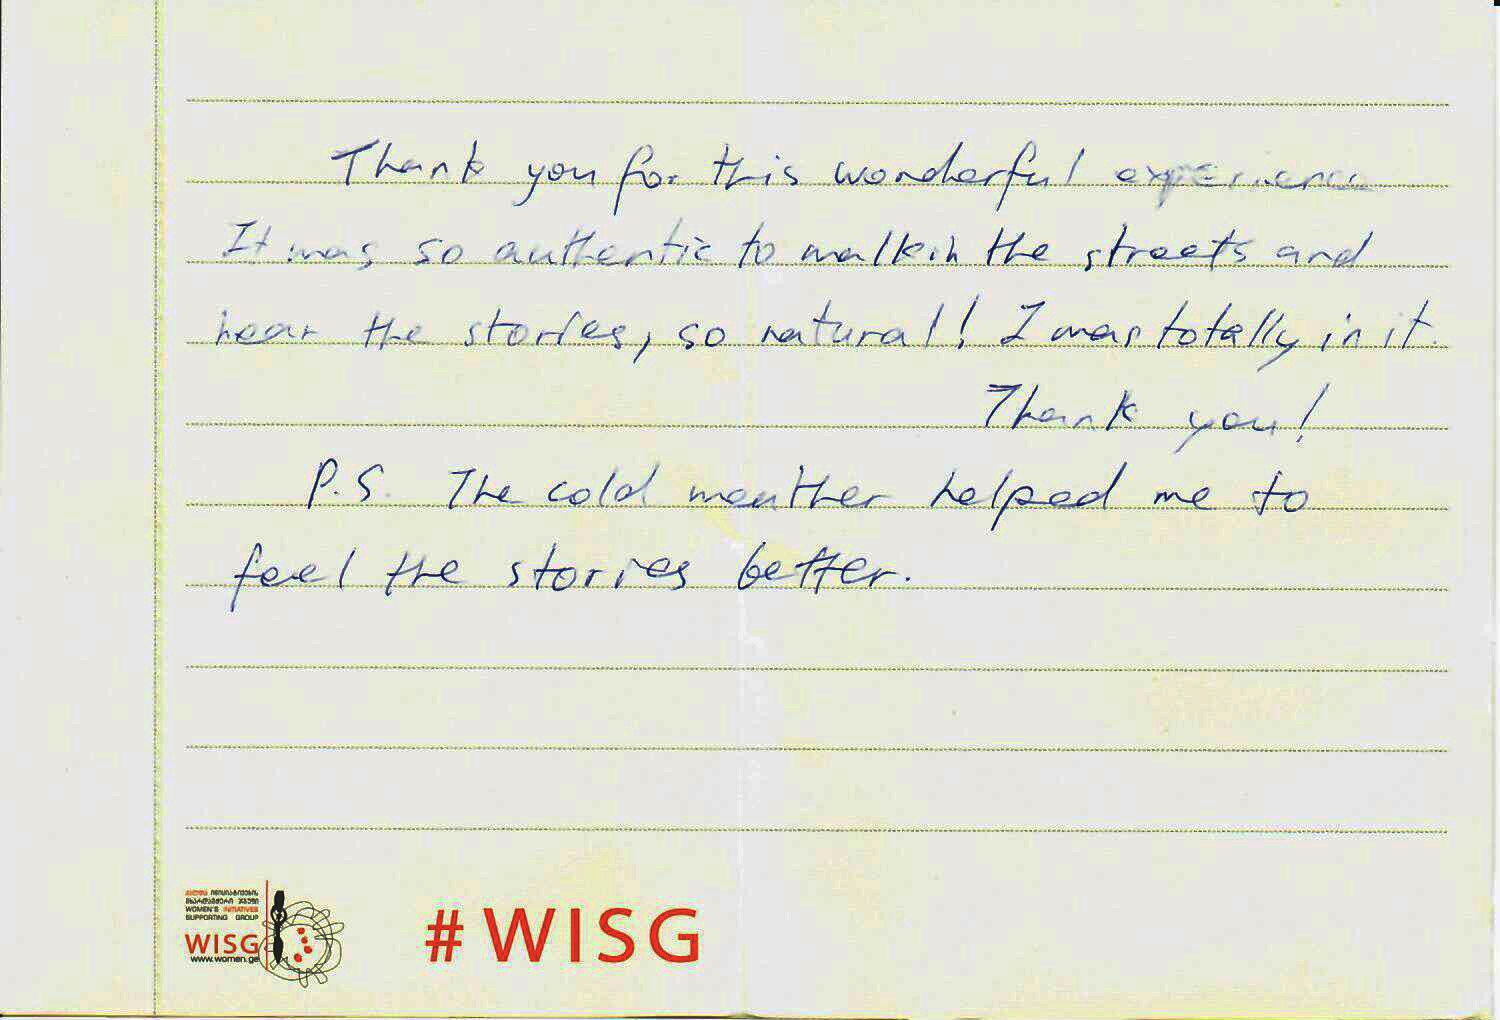 Thank you for this wonderful experience
It was so authentic to walk in the streets and
hear the stories, so natural! I was totally in it.
Thank you!
P.S. The cold weather helped me to
feel the stories better.
ქალთა ინიციატივების
მხარდამჭერი ჯგუფი
WOMEN'S INITIATIVES
SUPPORTING GROUP
WISG
www.women.ge
#WISG